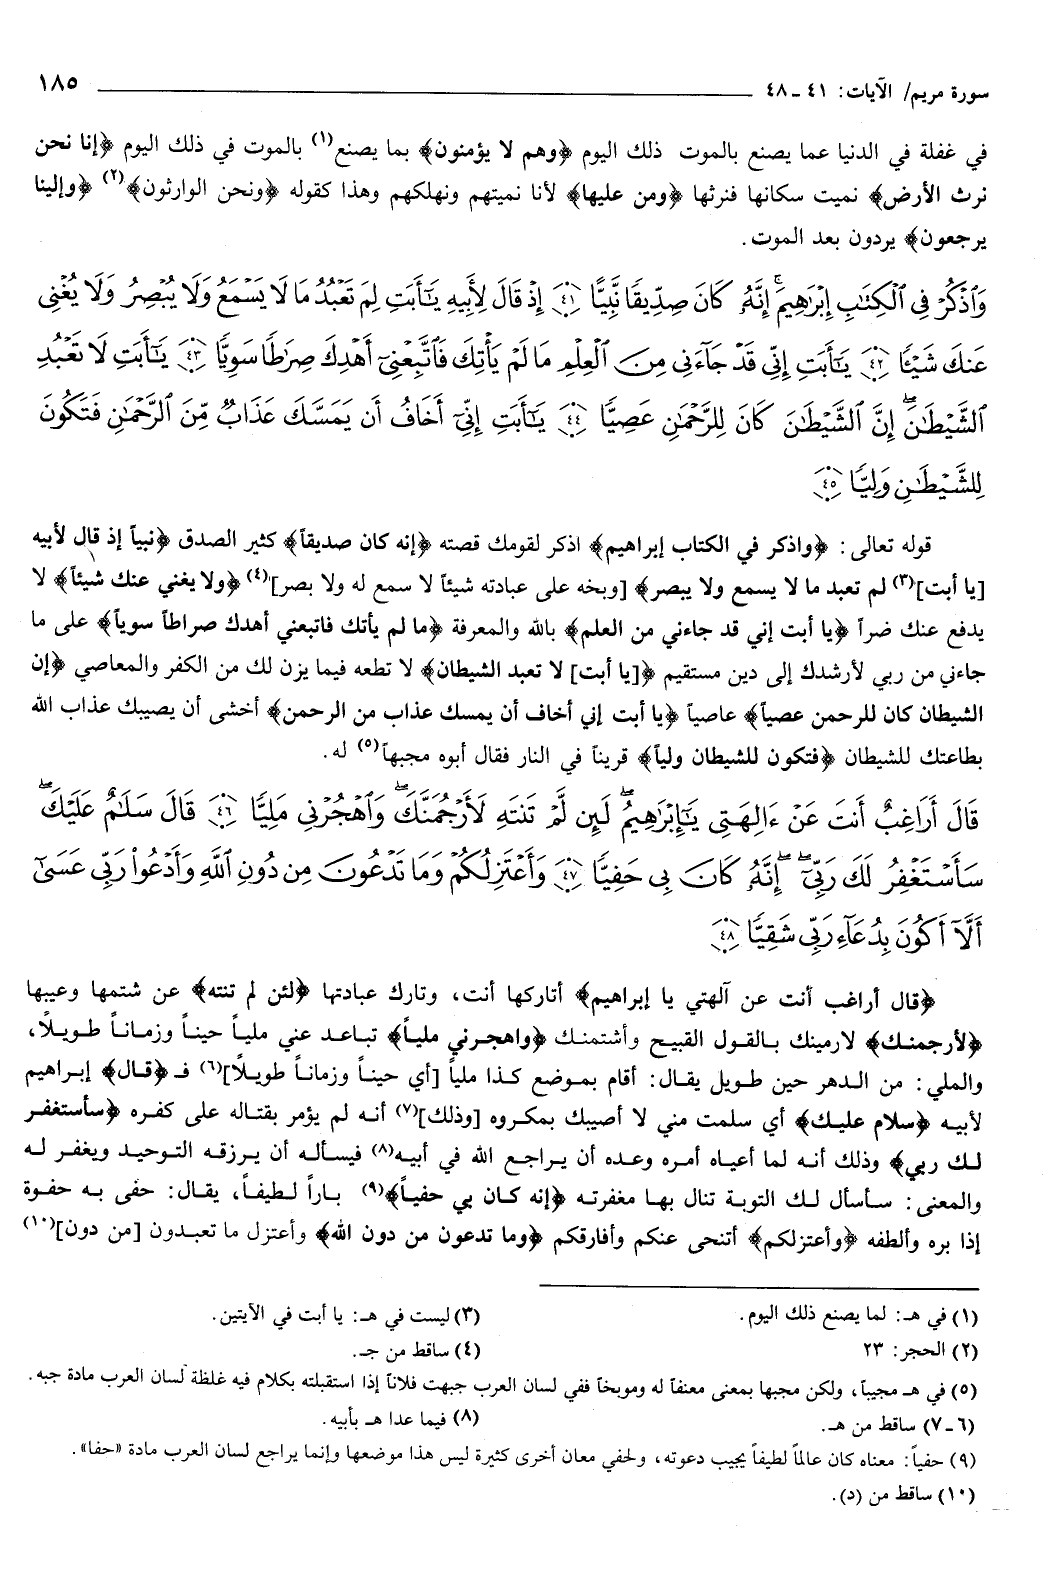 سورة مريم/ الآيات: ٤١ ـ ٤٨ ١٨٥
في غفلة في الدنيا عما يصنع بالموت ذلك اليوم ﴿وهم لا يؤمنون﴾ بما يصنع(١) بالموت في ذلك اليوم ﴿إنا نحن
نرث الأرض﴾ نميت سكانها فنرثها ﴿ومن عليها﴾ لأنا نميتهم ونهلكهم وهذا كقوله ﴿ونحن الوارثون﴾(٢) ﴿وإلينا
يرجعون﴾ يردون بعد الموت.
وَٱذْكُرْ فِى ٱلْكِتَٰبِ إِبْرَٰهِيمَ ۚ إِنَّهُۥ كَانَ صِدِّيقًا نَّبِيًّا ﴿٤١﴾ إِذْ قَالَ لِأَبِيهِ يَٰٓأَبَتِ لِمَ تَعْبُدُ مَا لَا يَسْمَعُ وَلَا يُبْصِرُ وَلَا يُغْنِى
عَنكَ شَيْـًٔا ﴿٤٢﴾ يَٰٓأَبَتِ إِنِّى قَدْ جَآءَنِى مِنَ ٱلْعِلْمِ مَا لَمْ يَأْتِكَ فَٱتَّبِعْنِىٓ أَهْدِكَ صِرَٰطًا سَوِيًّا ﴿٤٣﴾ يَٰٓأَبَتِ لَا تَعْبُدِ
ٱلشَّيْطَٰنَ ۖ إِنَّ ٱلشَّيْطَٰنَ كَانَ لِلرَّحْمَٰنِ عَصِيًّا ﴿٤٤﴾ يَٰٓأَبَتِ إِنِّىٓ أَخَافُ أَن يَمَسَّكَ عَذَابٌ مِّنَ ٱلرَّحْمَٰنِ فَتَكُونَ
لِلشَّيْطَٰنِ وَلِيًّا ﴿٤٥﴾
قوله تعالى: ﴿واذكر في الكتاب إبراهيم﴾ اذكر لقومك قصته ﴿إنه كان صديقاً﴾ كثير الصدق ﴿نبياً إذ قال لأبيه
[يا أبت](٣) لم تعبد ما لا يسمع ولا يبصر﴾ [وبخه على عبادته شيئاً لا سمع له ولا بصر](٤) ﴿ولا يغني عنك شيئاً﴾ لا
يدفع عنك ضراً ﴿يا أبت إني قد جاءني من العلم﴾ بالله والمعرفة ﴿ما لم يأتك فاتبعني أهدك صراطاً سوياً﴾ على ما
جاءني من ربي لأرشدك إلى دين مستقيم ﴿[يا أبت] لا تعبد الشيطان﴾ لا تطعه فيما يزن لك من الكفر والمعاصي ﴿إن
الشيطان كان للرحمن عصياً﴾ عاصياً ﴿يا أبت إني أخاف أن يمسك عذاب من الرحمن﴾ أخشى أن يصيبك عذاب الله
بطاعتك للشيطان ﴿فتكون للشيطان ولياً﴾ قريناً في النار فقال أبوه مجبهاً(٥) له.
قَالَ أَرَاغِبٌ أَنتَ عَنْ ءَالِهَتِى يَٰٓإِبْرَٰهِيمُ ۖ لَئِن لَّمْ تَنتَهِ لَأَرْجُمَنَّكَ ۖ وَٱهْجُرْنِى مَلِيًّا ﴿٤٦﴾ قَالَ سَلَٰمٌ عَلَيْكَ ۖ
سَأَسْتَغْفِرُ لَكَ رَبِّىٓ ۖ إِنَّهُۥ كَانَ بِى حَفِيًّا ﴿٤٧﴾ وَأَعْتَزِلُكُمْ وَمَا تَدْعُونَ مِن دُونِ ٱللَّهِ وَأَدْعُوا۟ رَبِّى عَسَىٰٓ
أَلَّآ أَكُونَ بِدُعَآءِ رَبِّى شَقِيًّا ﴿٤٨﴾
﴿قال أراغب أنت عن آلهتي يا إبراهيم﴾ أتاركها أنت، وتارك عبادتها ﴿لئن لم تنته﴾ عن شتمها وعيبها
﴿لأرجمنك﴾ لارمينك بالقول القبيح وأشتمنك ﴿واهجرني ملياً﴾ تباعد عني ملياً حيناً وزماناً طويلاً،
والملي: من الدهر حين طويل يقال: أقام بموضع كذا ملياً [أي حيناً وزماناً طويلاً](٦) فـ ﴿قال﴾ إبراهيم
لأبيه ﴿سلام عليك﴾ أي سلمت مني لا أصيبك بمكروه [وذلك](٧) أنه لم يؤمر بقتاله على كفره ﴿سأستغفر
لك ربي﴾ وذلك أنه لما أعياه أمره وعده أن يراجع الله في أبيه(٨) فيسأله أن يرزقه التوحيد ويغفر له
والمعنى: سأسأل لك التوبة تنال بها مغفرته ﴿إنه كان بي حفياً﴾(٩) باراً لطيفاً، يقال: حفى به حفوة
إذا بره وألطفه ﴿وأعتزلكم﴾ أتنحى عنكم وأفارقكم ﴿وما تدعون من دون الله﴾ وأعتزل ما تعبدون [من دون](١٠)
(١) في هـ: لما يصنع ذلك اليوم. (٣) ليست في هـ: يا أبت في الآيتين.
(٢) الحجر: ٢٣ (٤) ساقط من جـ.
(٥) في هـ مجيباً، ولكن مجبها بمعنى معنفاً له وموبخاً ففي لسان العرب جبهت فلاناً إذا استقبلته بكلام فيه غلظة لسان العرب مادة جبه.
(٦ ـ ٧) ساقط من هـ. (٨) فيما عدا هـ بأبيه.
(٩) حفياً: معناه كان عالماً لطيفاً يجيب دعوته، ولحفي معان أخرى كثيرة ليس هذا موضعها وإنما يراجع لسان العرب مادة «حفا».
(١٠) ساقط من (د).